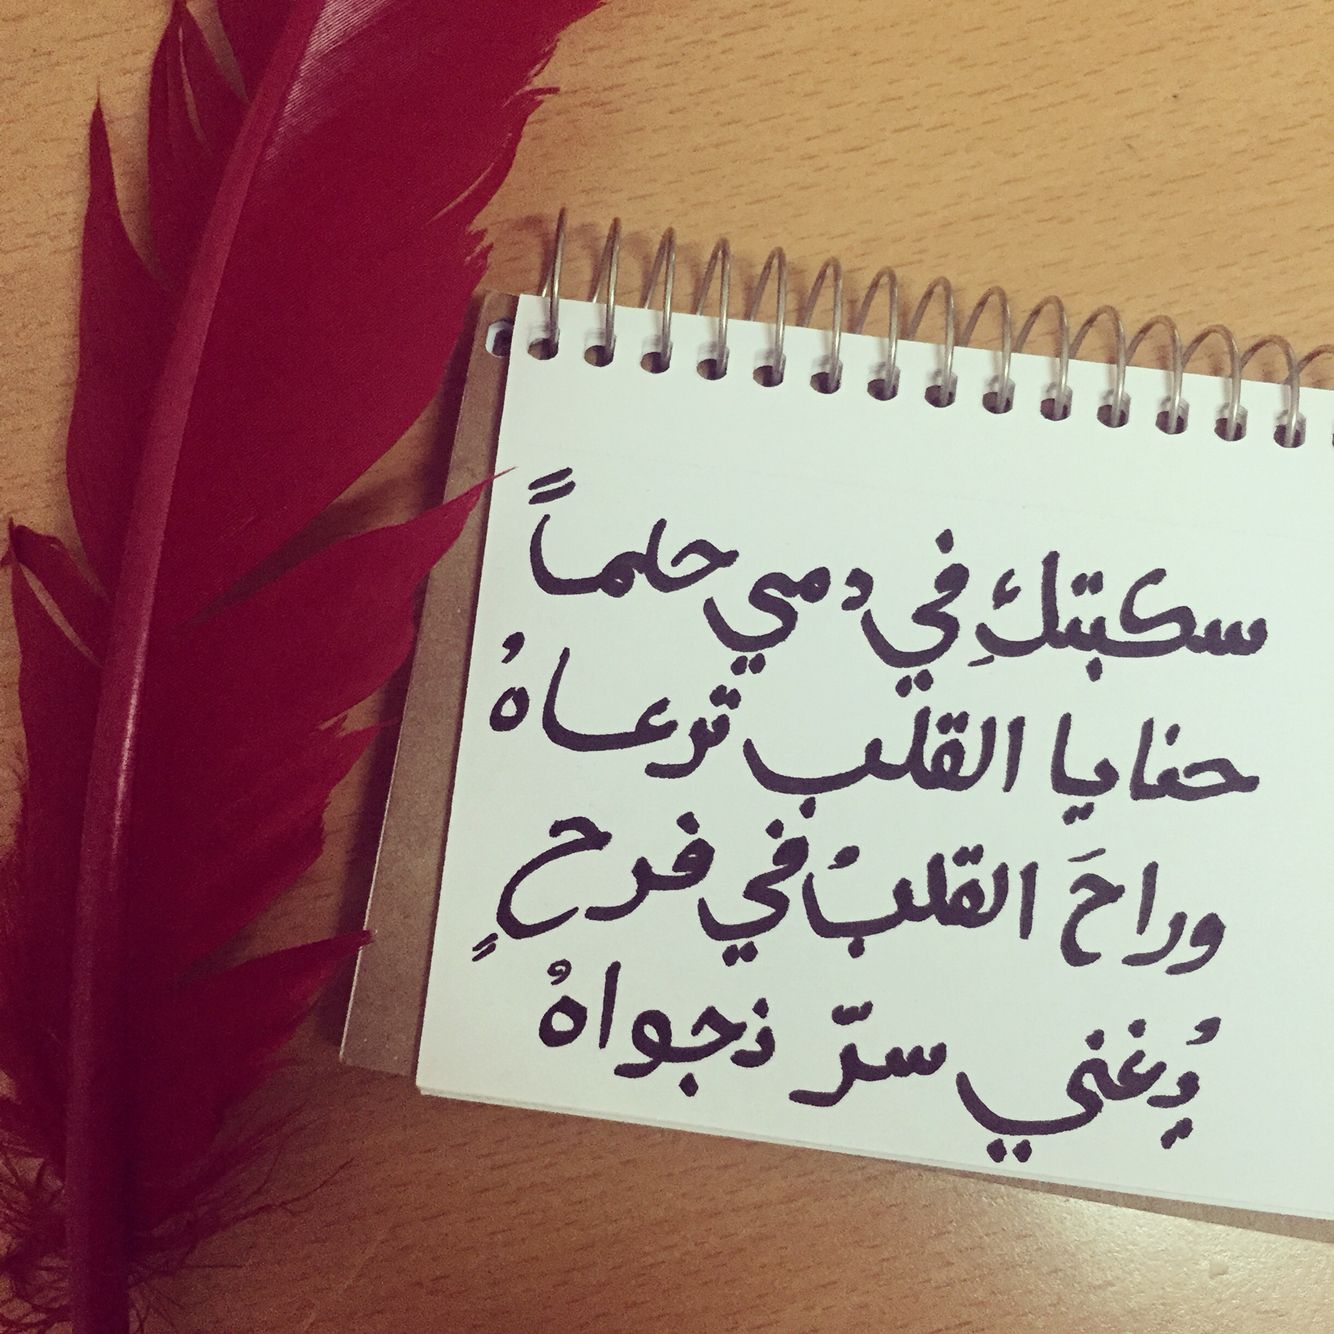 سكبتكِ في دمي حلماً
حنايا القلب ترعاهُ
وراحَ القلبُ في فرحٍ
يُغني سرّ نجواهُ